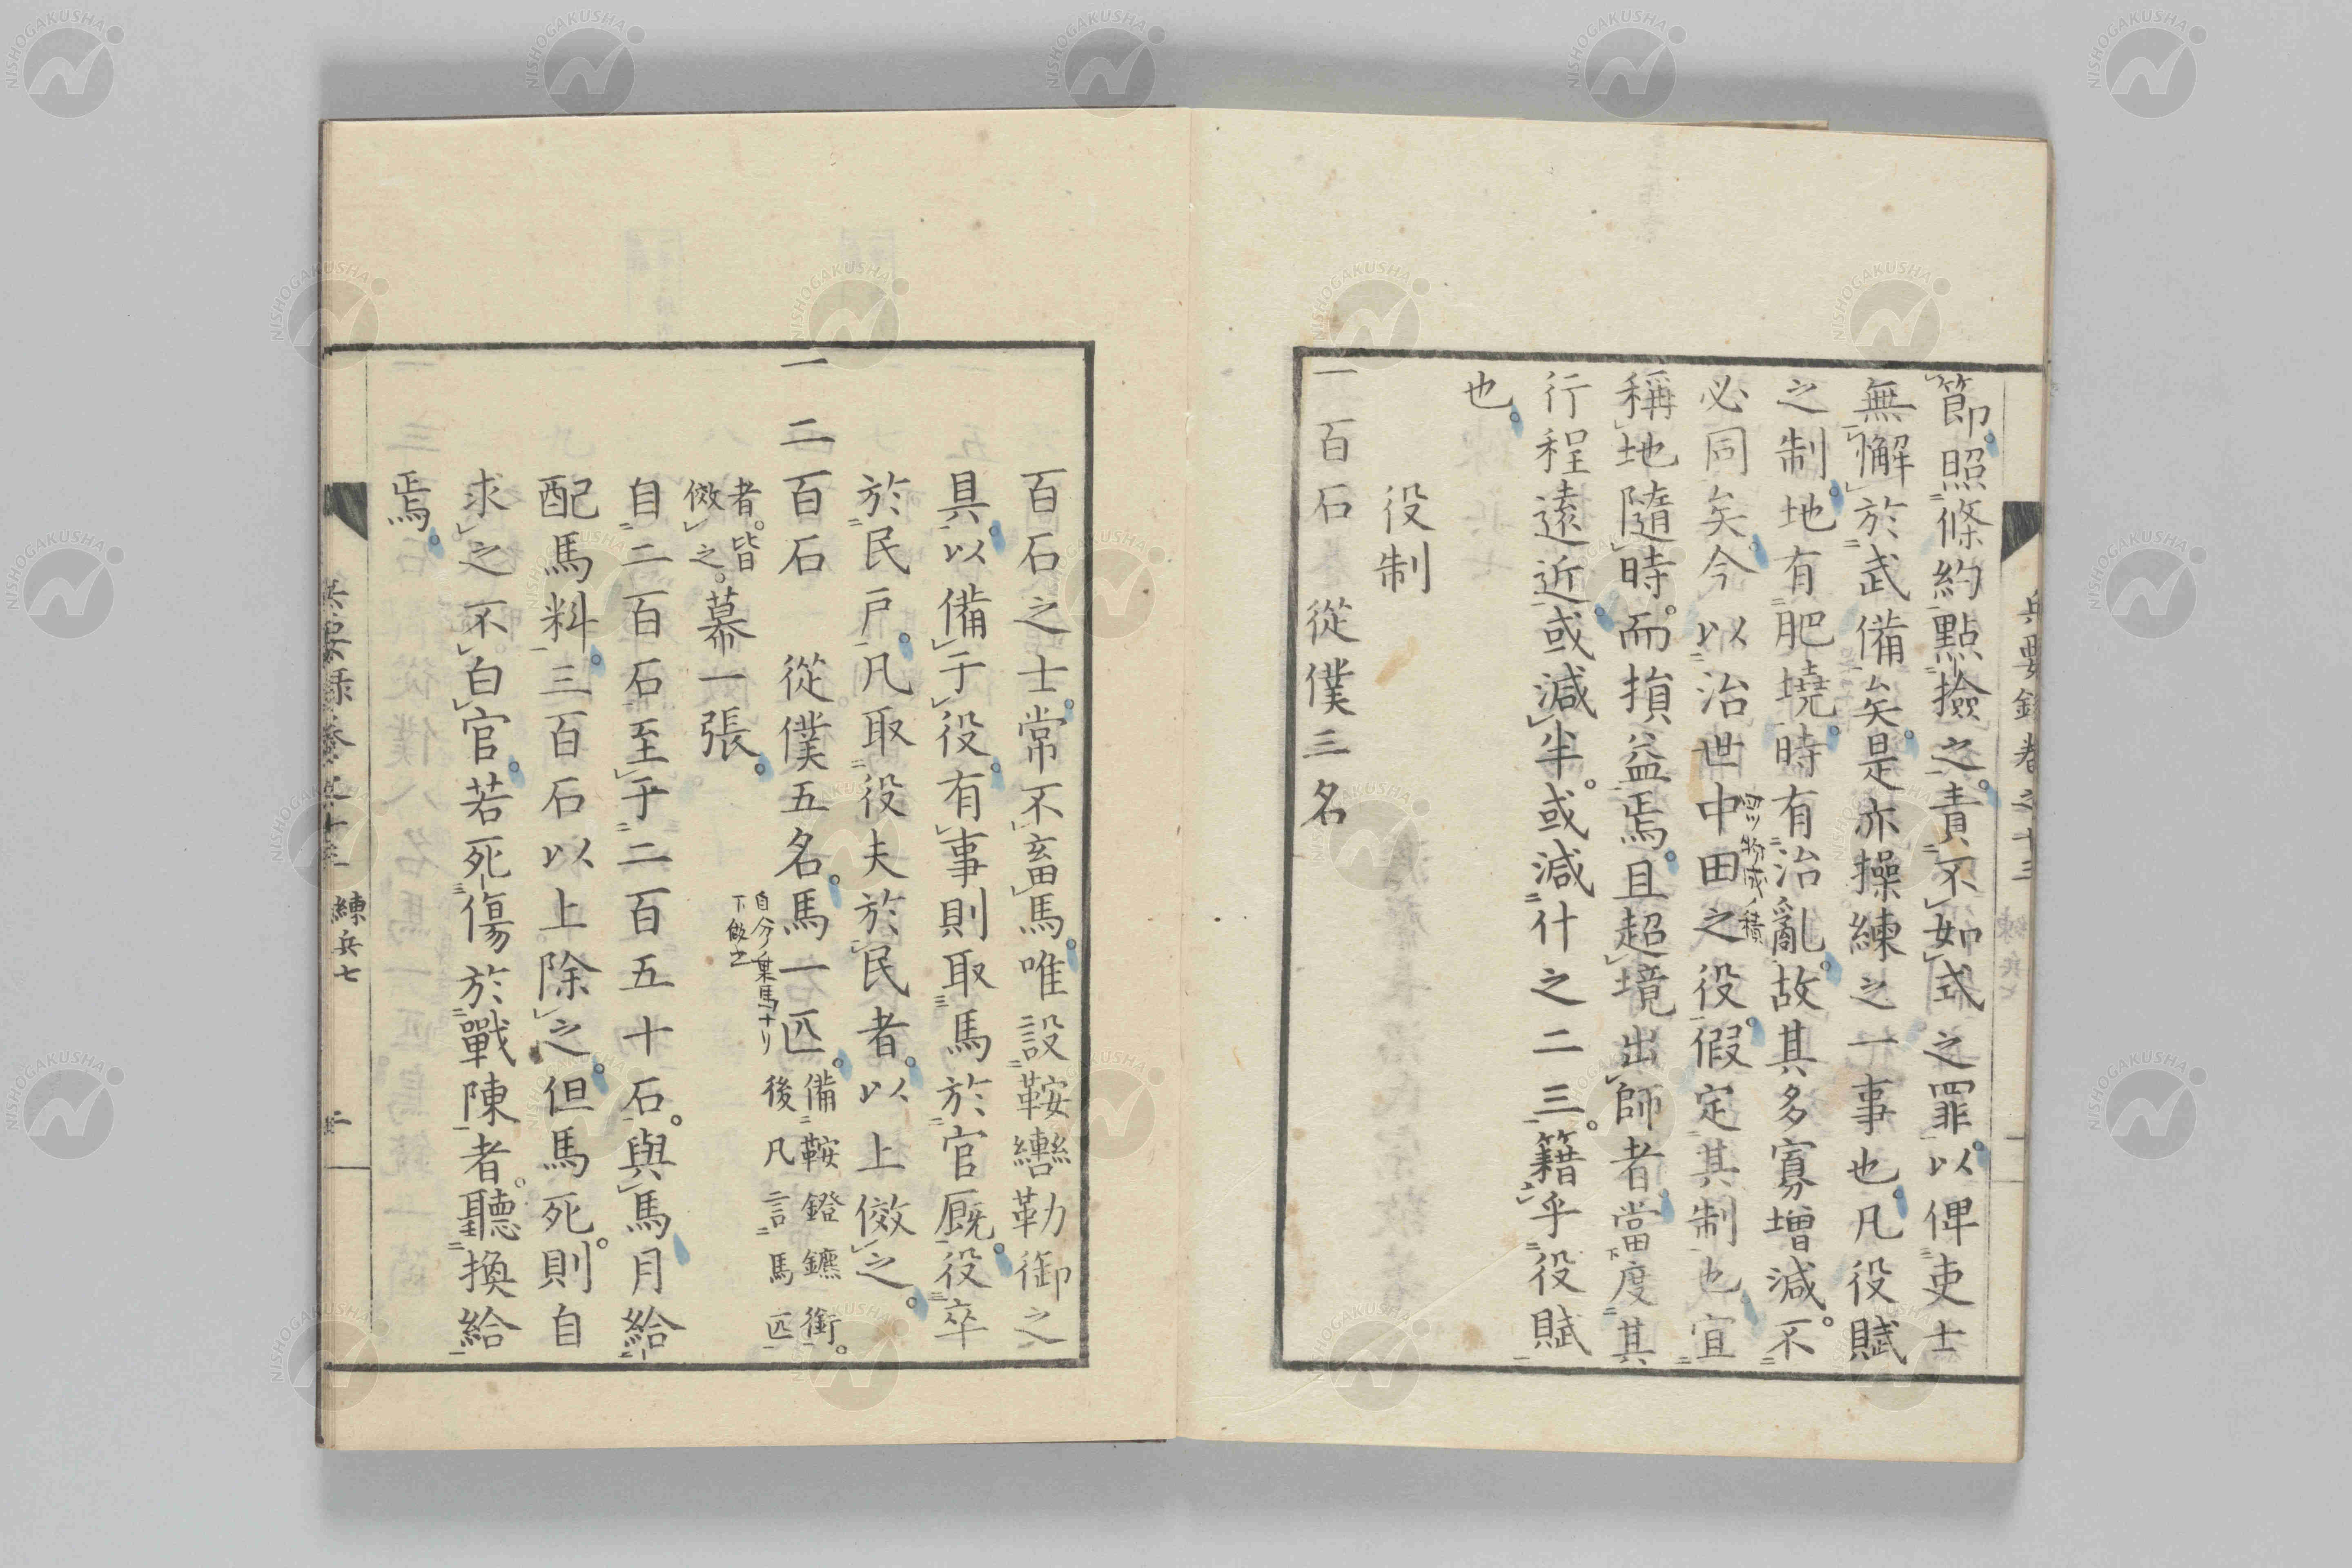 兵要錄卷之十三
節。照條約點撿之。責不如式之罪。以俾吏士
無懈於武備矣。是亦操練之一事也。凡役賦
之制。地有肥墝。時有治亂。故其多寡增減。不
必同矣。今以治世中田之役。假定其制也。宜
稱地隨時。而損益焉。且超境出師者。當度其
行程遠近。或減半。或減什之二三。籍乎役賦
也。
役制
一百石 從僕三名
百石之士。常不畜馬。唯設鞍轡勒御之
具。以備于役。有事則取馬於官廐。役卒
於民戸。凡取役夫於民者。以上傚之。
一 二百石 從僕五名。馬一匹。備鞍鐙鑣銜。
後凡言馬匹
者。皆
傚之。幕一張。
自二百石至于二百五十石。與馬月給
配馬料。三百石以上除之。但馬死。則自
求之不白官。若死傷於戰陳者。聽換給
焉。
練兵七
NISHOGAKUSHA